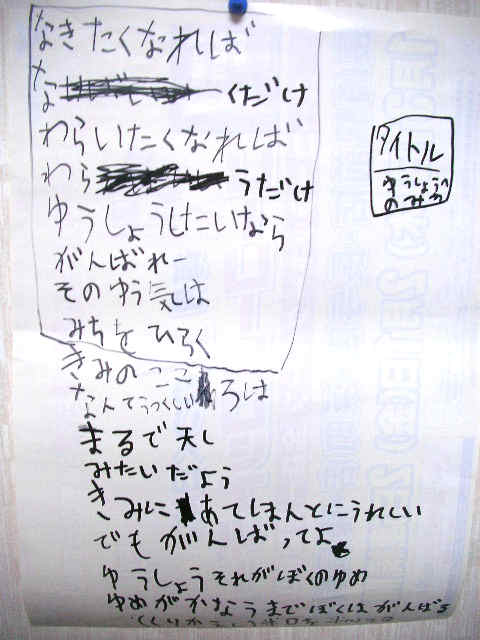 なきたくなれば
なくだけ
わらいたくなれば
わらうだけ
ゆうしょうしたいなら
がんばれー
そのゆう気は
みちをひらく
きみのこころは
なんてうつくしい
まるで天し
みたいだよう
きみにあてほんとにうれしい
でもがんばってよ
ゆうしょうそれがぼくのゆめ
ゆめがかなうまでぼくはがんばる
タイトル
ゆうしょうへ
のみち